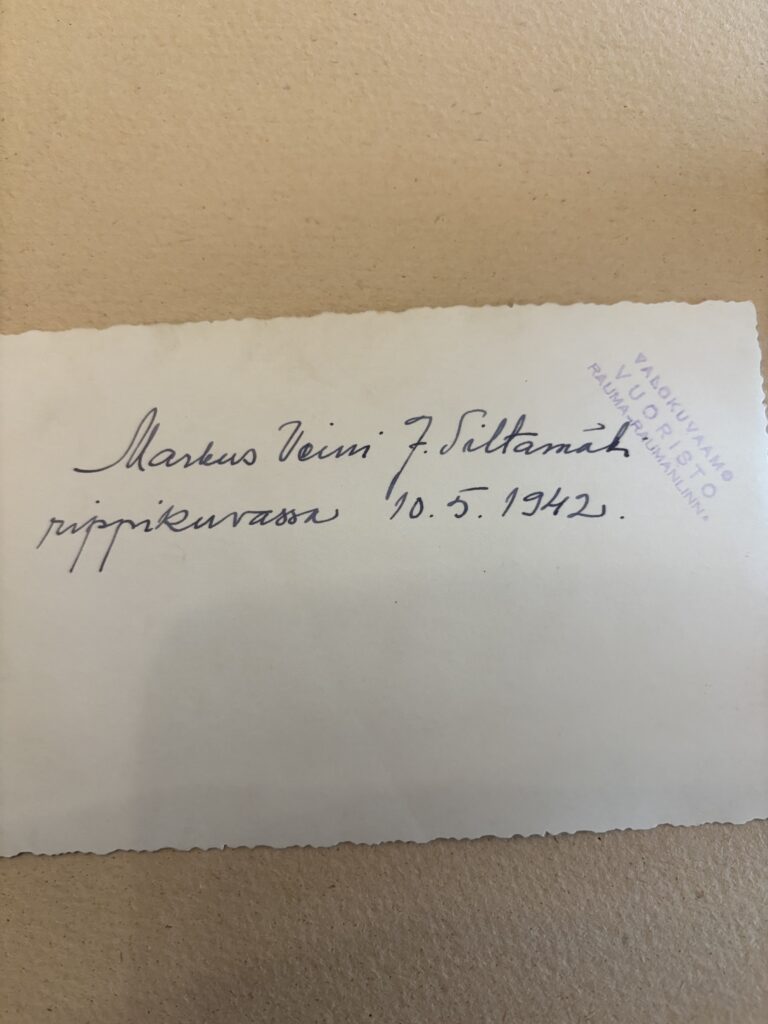 Markus Veini J. Siltamäki
rippikuvassa 10.5.1942.
VALOKUVAAMO
VUORISTO
RAUMA-RAUMANLINNA